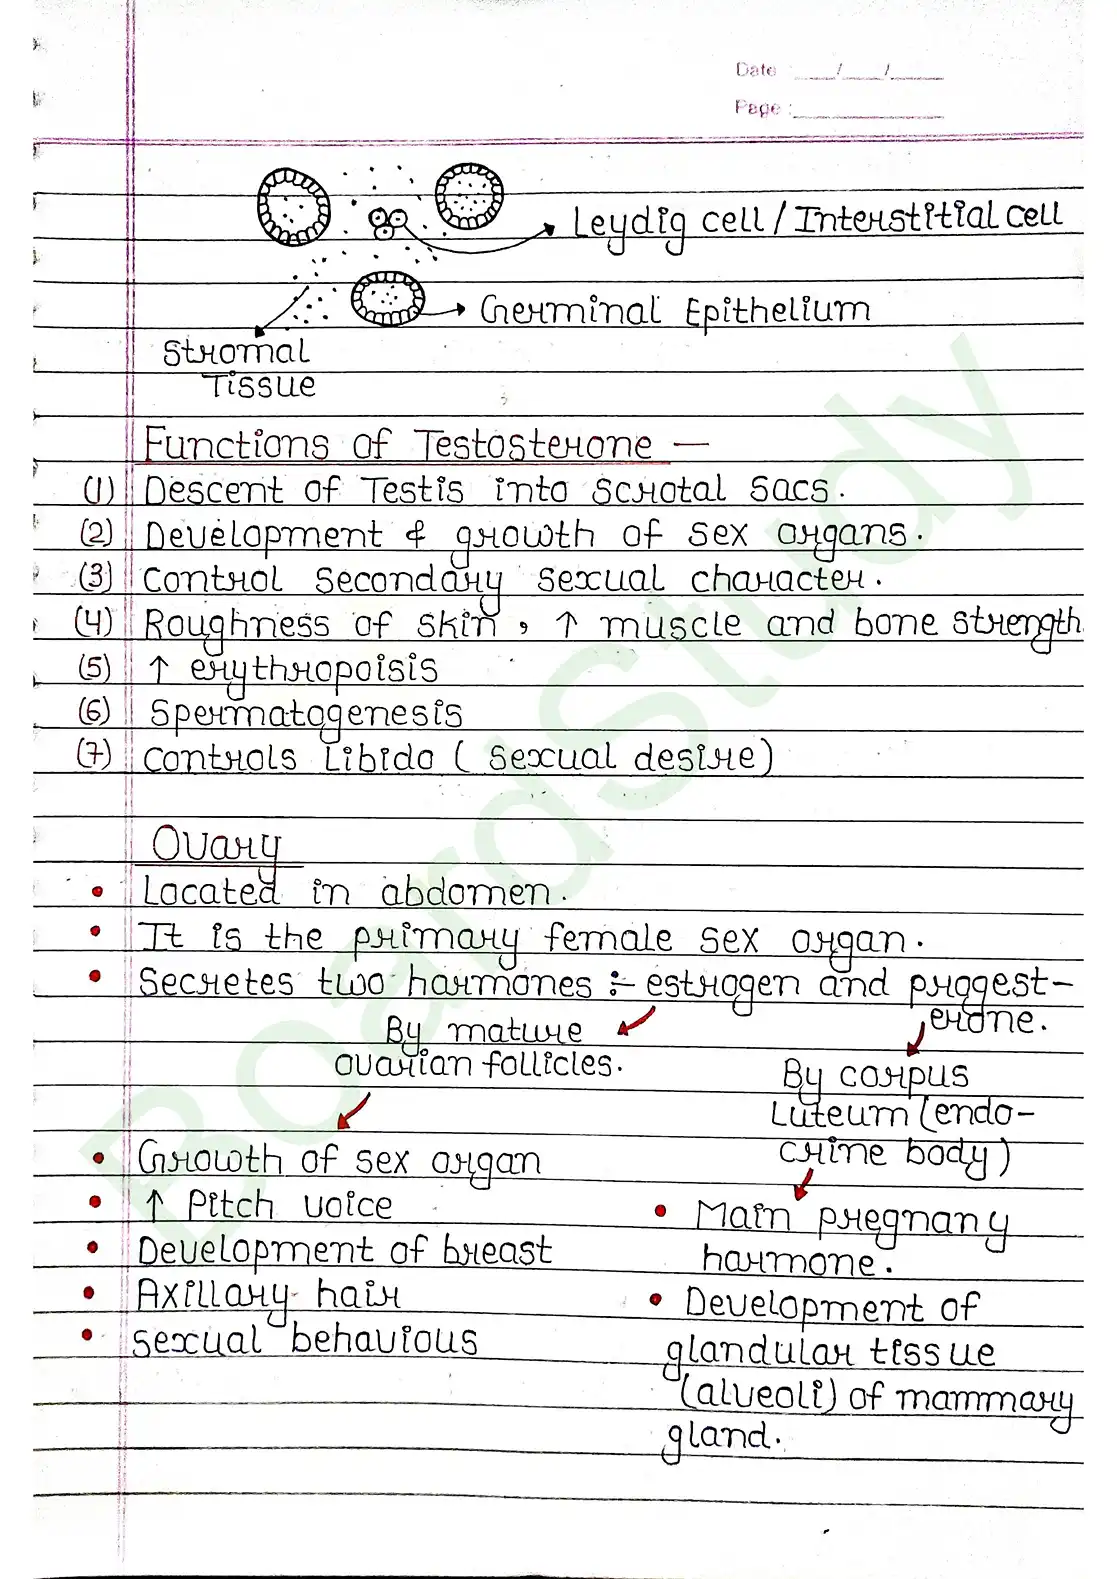 Date : ___/___/____
Page : ____________
Leydig cell / Interstitial cell
Germinal Epithelium
Stromal
Tissue
Functions of Testosterone —
(1) Descent of Testis into scrotal sacs.
(2) Development & growth of sex organs.
(3) control secondary sexual character.
(4) Roughness of skin, ↑ muscle and bone strength
(5) ↑ erythropoisis
(6) Spermatogenesis
(7) controls Libido ( sexual desire)
Ovary
• Located in abdomen.
• It is the primary female sex organ.
• Secretes two hormones :- estrogen and progest-
erone.
By mature
ovarian follicles.
By corpus
Luteum (endo-
crine body)
• Growth of sex organ
• ↑ Pitch voice
• Development of breast
• Axillary hair
• sexual behavious
• Main pregnany
hormone.
• Development of
glandular tissue
(alveoli) of mammary
gland.
BoardStudy